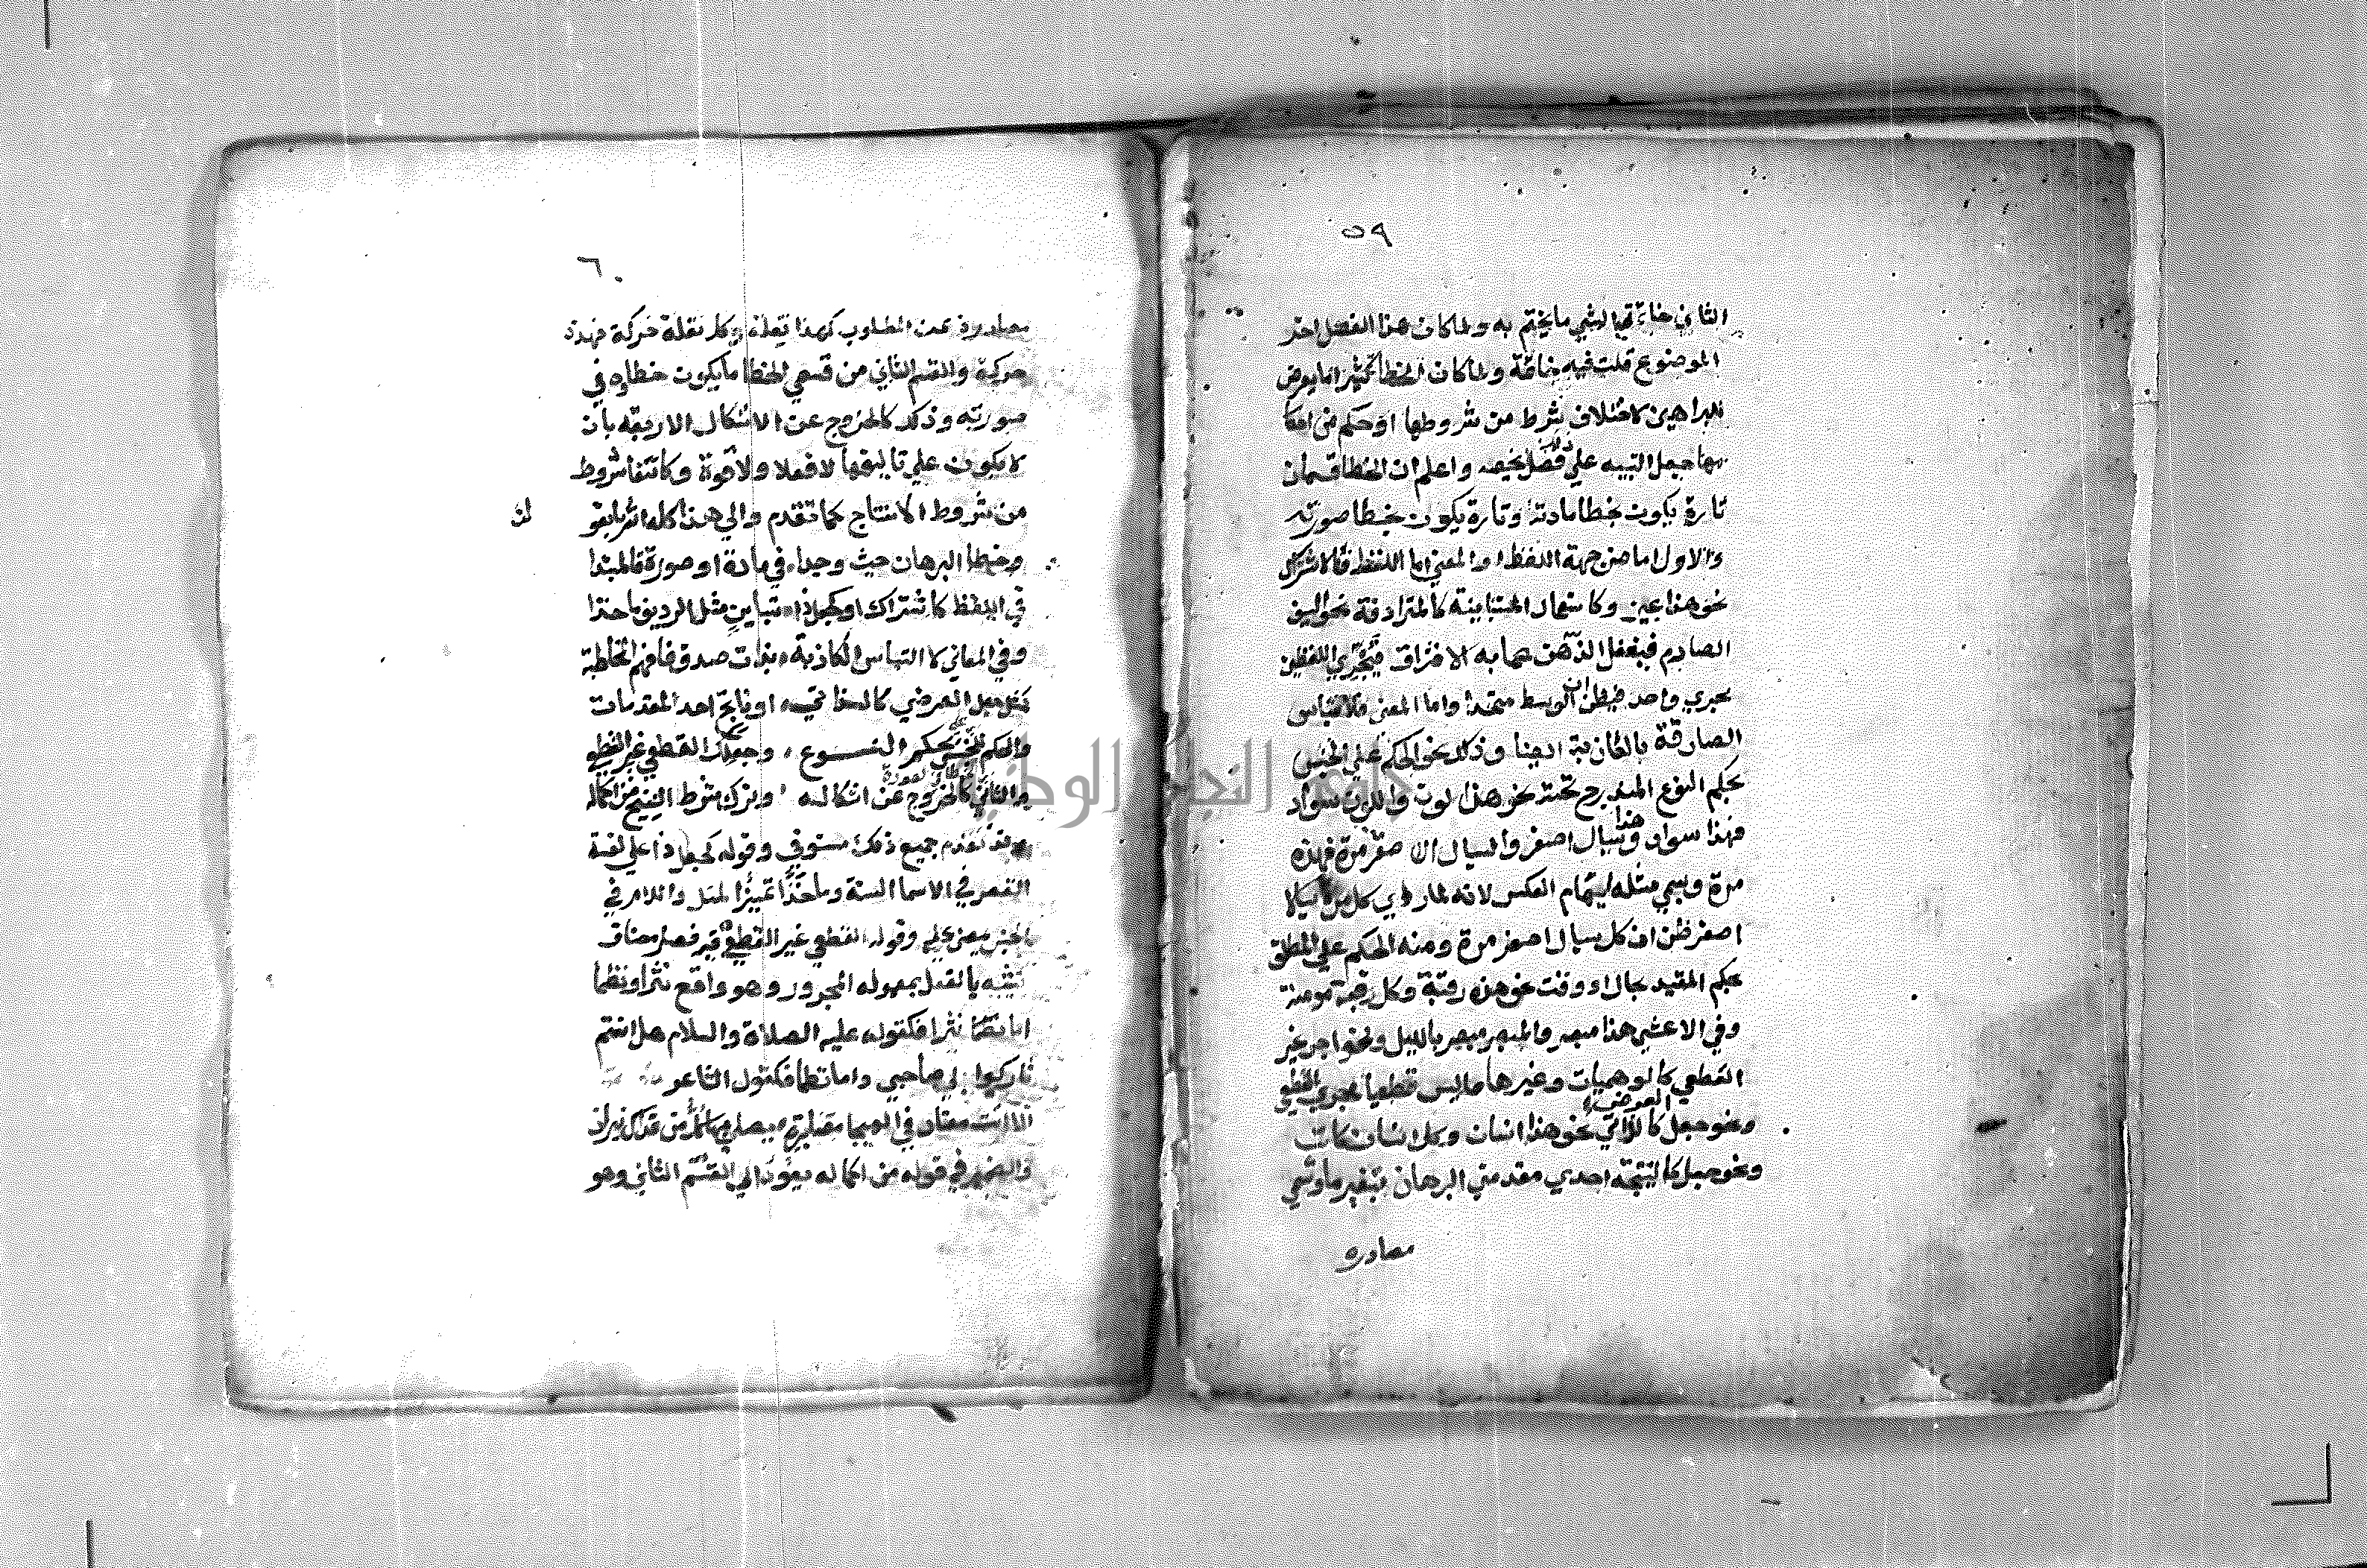 ٥٩
الثاني خاتمة الشي ما يختم به ولما كان هذا الفصل اخر
الموضوع قلت فيه خاتمة ولما كان الخطا كثيرا ما يعرض
للبراهين لاختلاف شرط من شروطها او حكم من احكا
مها جعل التنبيه على فصل يخصه واعلم ان الخطا قسمان
تارة يكون بخطا مادته وتارة يكون بخطا صورته
والاول اما من جهة اللفظ او المعنى اما اللفظ فكالاشتراك
نحو هذا عين وكاستعمال المتباينة كالمترادفة نحو السيف
الصارم فيغفل الذهن عما به الافتراق فيجري اللفظين
مجري واحد فيظن ان الوسط متحد واما المعنى فلالتباس
الصادقة بالكاذبة ايضا وذلك نحو الحكم على الجنس
بحكم النوع المندرج تحته نحو هذا لون واللون سواد
فهذا سواد وهذا سيال اصفر والسيال الاصفر مرة فهذه
مرة وسمي مثله ايهام العكس لانه لما راي كل مرة سيالا
اصفر ظن ان كل سيال اصفر مرة ومنه الحكم على المطلق
بحكم المقيد بحال او وقت نحو هذه رقبة وكل رقبة مومنة
وفي الاعشي هذا مبصر والمبصر مبصر بالليل ونحو اجر غير
القطعي كالوهميات وغيرها مما ليس قطعيا مجري القطعي
ونحو جعل العرضي كالذاتي نحو هذا انسان وكل انسان كاتب
ونحو جعل كالنتيجة احدي مقدمتي البرهان بتغير ما وتسمي
مصادره
٦٠
مصادرة عن المطلوب كهذا نقلة وكل نقلة حركة فهذه
حركة والقسم الثاني من قسمي الخطا ما يكون خطاوه في
صورته وذلك كالخروج عن الاشكال الاربعة بان
لا يكون على تاليفها لا فعلا ولا قوة وكانتفا شروط
من شروط الانتاج كما تقدم والي هذا كله اشرنا بقو
لنا
وخطا البرهان حيث وجدا في مادة او صورة فالمبتدا
في اللفظ كاشتراك او كجعل ذا تباين مثل الرديف ماخذا
وفي المعاني لا التباس الكاذبة بذات صدق فافهم المخاطبة
كمثل جعل العرضي كالذاتي او ناتج احد المقدمات
والحكم للجنس بحكم النوع وجعل كالقطعي غير القطعي
والثاني كالخروج عن اشكاله وترك شرط النتج من اكماله
وقد تقدم جميع ذلك مستوفي وقوله كجعل ذا على لغة
القصر في الاسما الستة وماخذا تمييزا لمثل واللام في
الجنس بمعنى على وقوله القطعي غير القطعي فيه فصل مضاف
شبيه بالفعل بمعموله المجرور وهو واقع نثرا ونظما
اما نثرا فكقوله عليه الصلاة والسلام هل انتم
تاركوا لي صاحبي واما نظما فكقول الشاعر
لانت معتاد في الهيجا مصابرة يصلى بها كل من عاداك نيرانا
والضمير في قوله من اكماله يعود الي القسم الثاني وهو